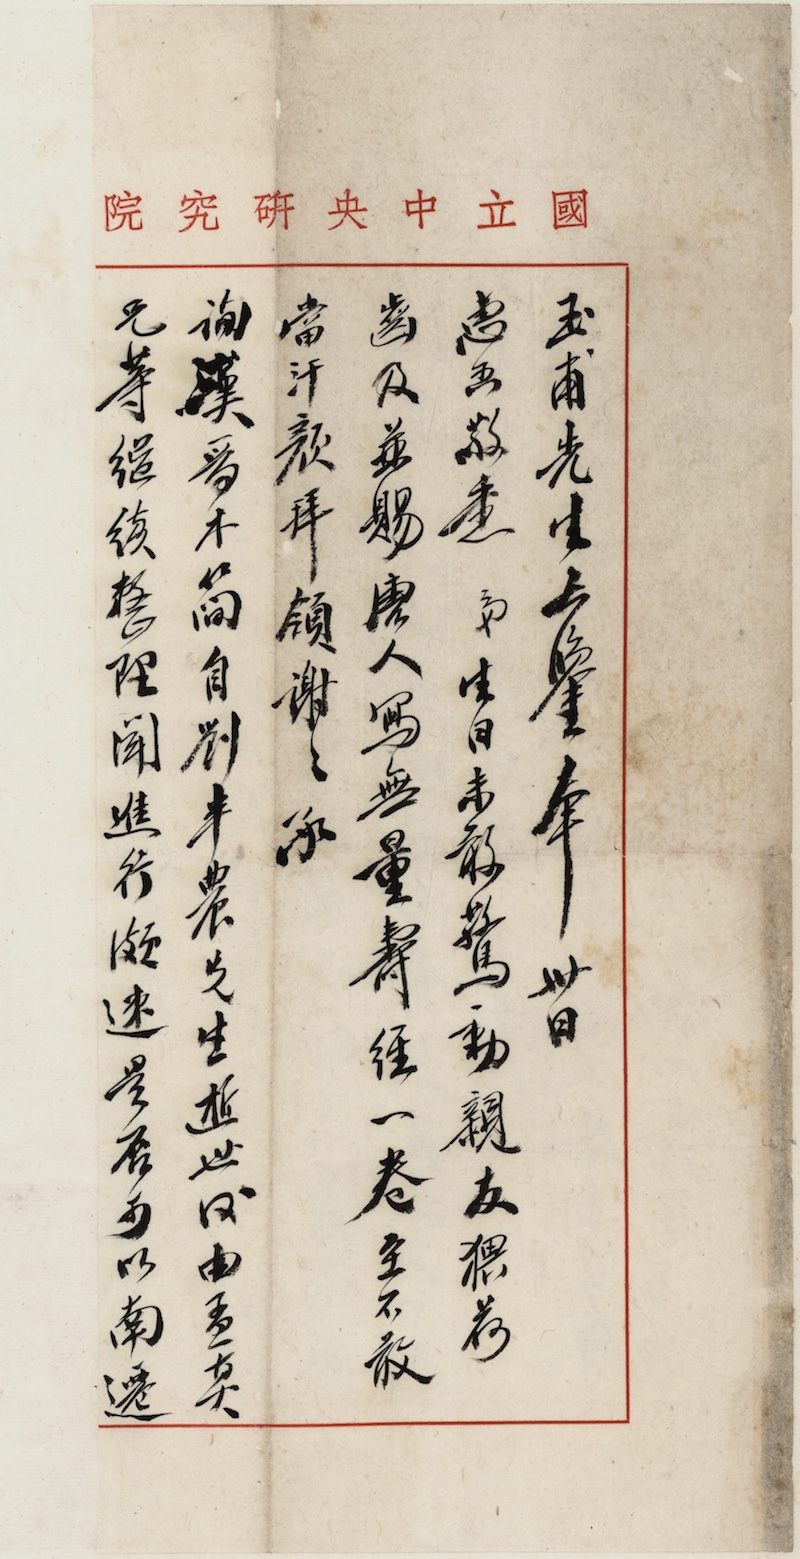 國立中央研究院
玉甫先生大鑒奉卅日
惠函敬悉弟生日未敢驚動親友猥荷
齒及並賜唐人寫無量壽經一卷至不敢
當汗顏拜領謝〻承
詢漢晉木簡自劉半農先生逝世後由孟真
兄等繼續整理聞進行頗速是否可以南遷